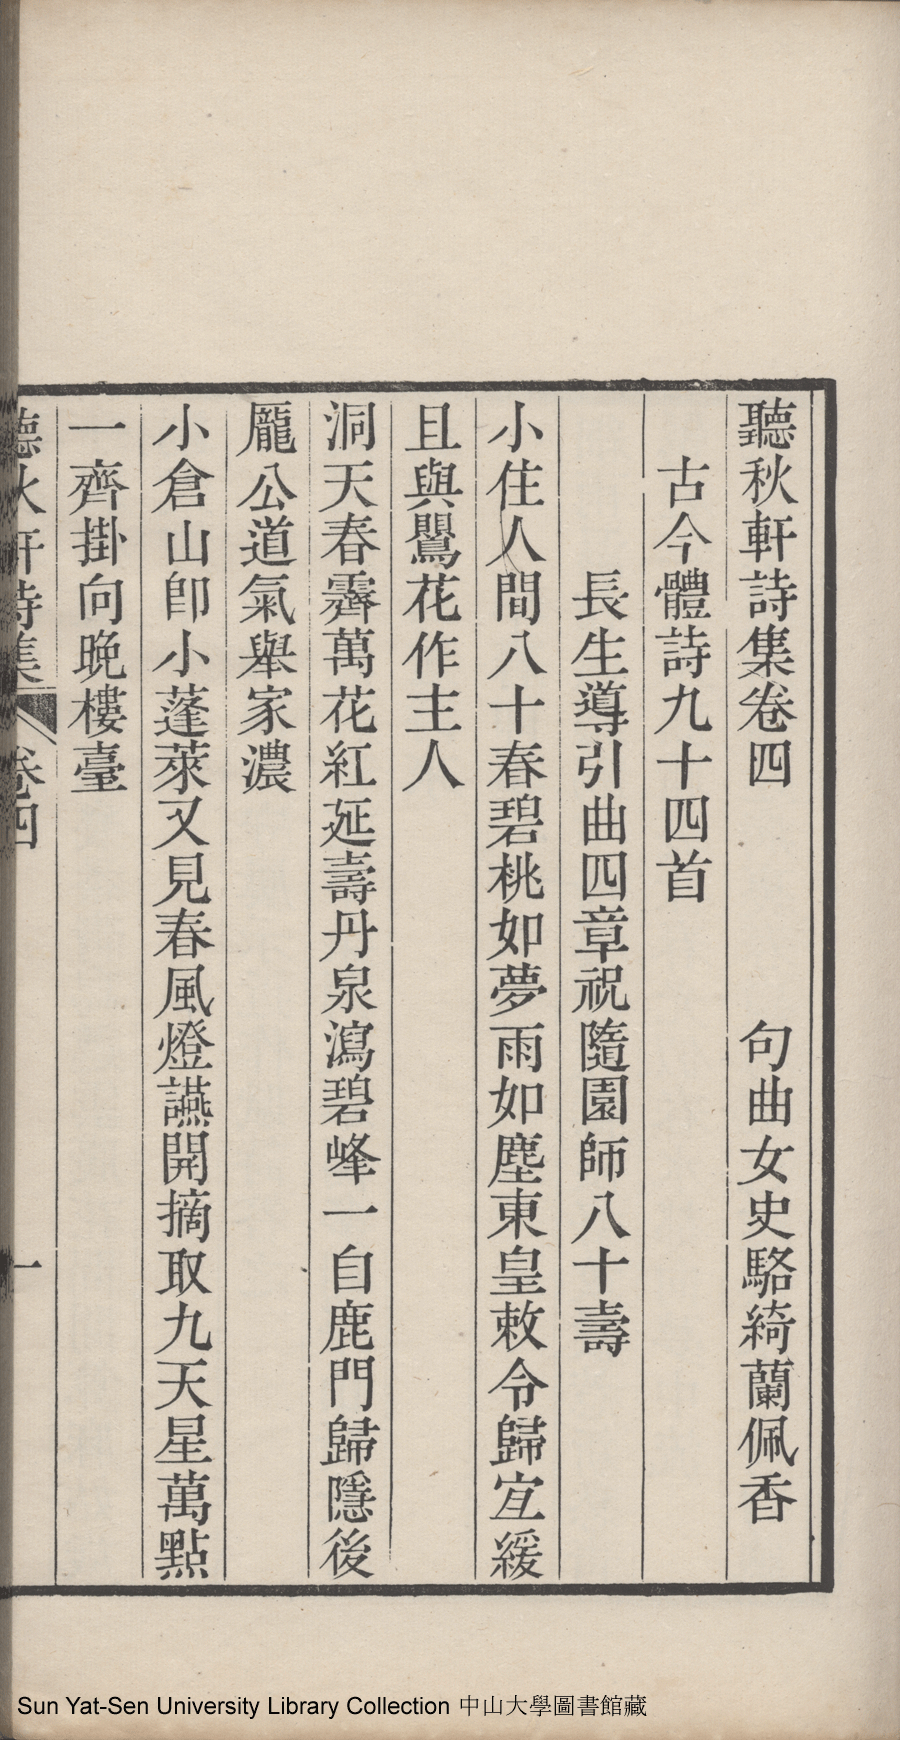 聽秋軒詩集卷四　句曲女史駱綺蘭佩香
古今體詩九十四首
長生導引曲四章祝隨園師八十壽
小住人間八十春碧桃如夢雨如塵東皇敕令歸宜緩
且與鸎花作主人
洞天春霽萬花紅延壽丹泉瀉碧峰一自鹿門歸隱後
龐公道氣舉家濃
小倉山卽小蓬萊又見春風燈讌開摘取九天星萬點
一齊掛向晚樓臺
聽秋軒詩集　卷四　一
Sun Yat-Sen University Library Collection 中山大學圖書館藏